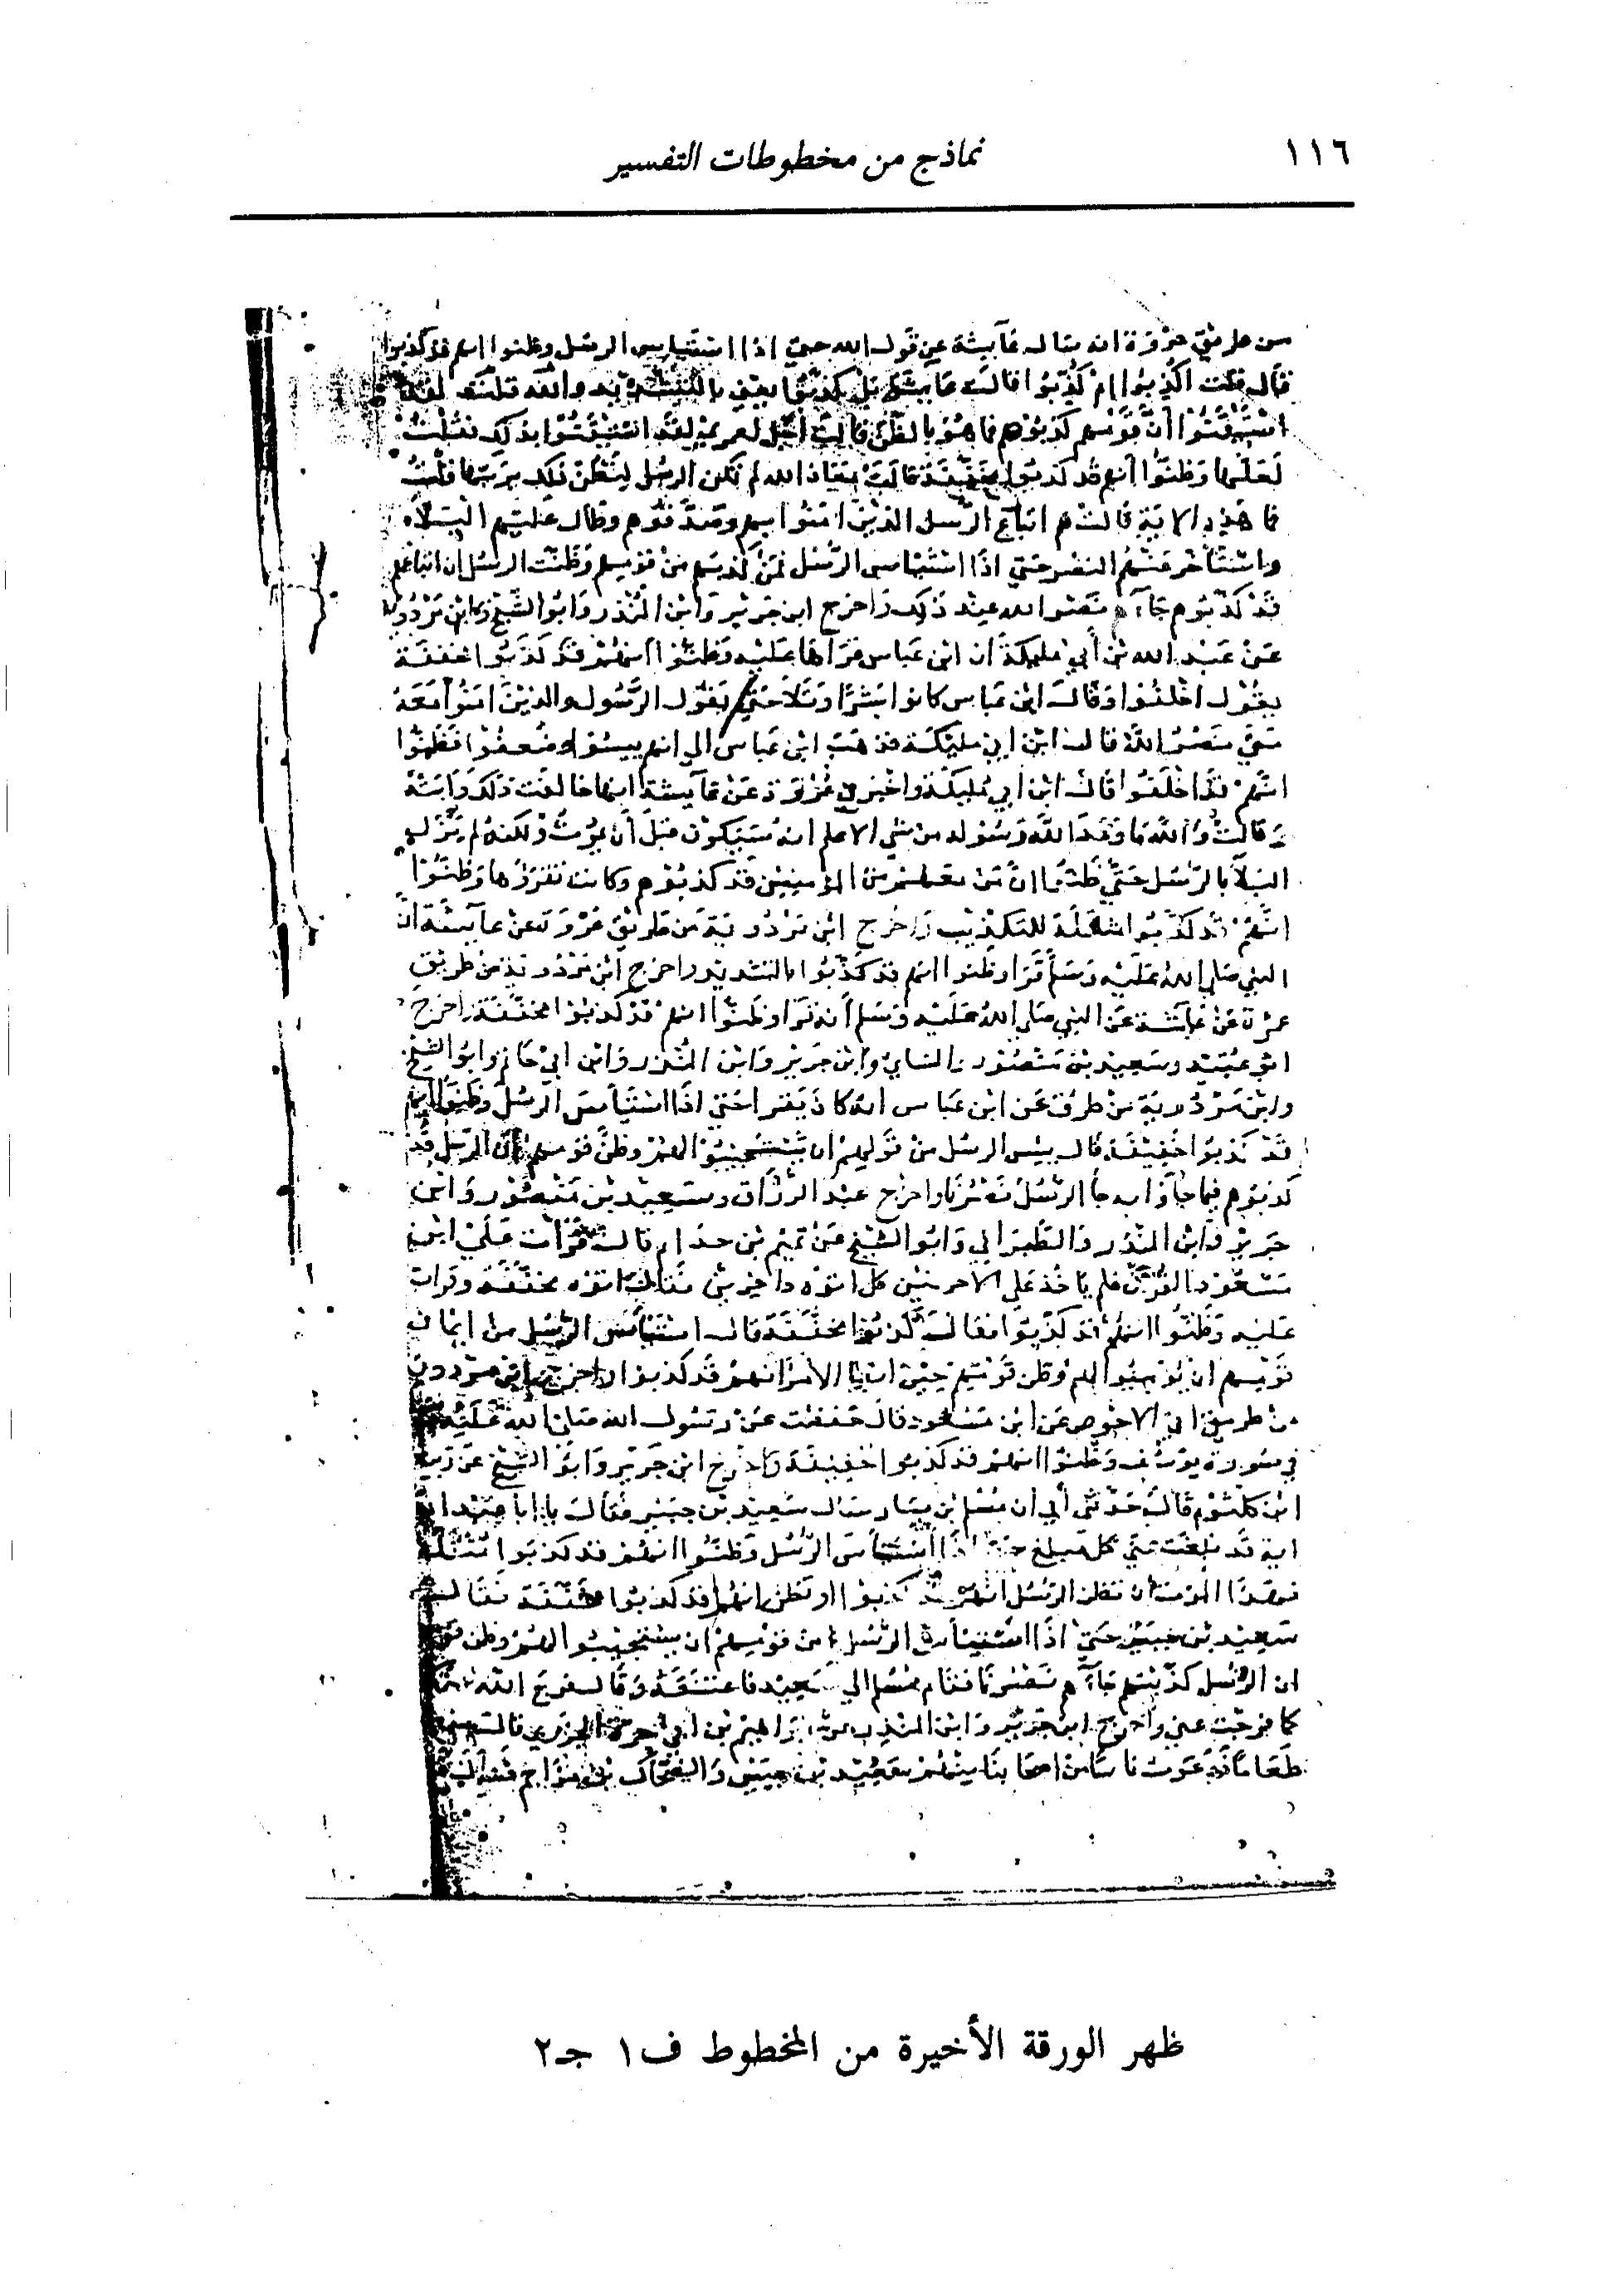 ١١٦
نماذج من مخطوطات التفسير
من طريق عروة انه سال عايشة عن قول الله حتى اذا استيايس الرسل وظنوا انهم قد كذبوا
قال قلت اكذبوا ام كذبوا قالت عايشة بل كذبوا يعني بالتشديد والله قلت لقد
استيقنوا أن قومهم كذبوهم فما هو بالظن قالت أجل لعمري لقد استيقنوا بذلك فقلت
لعلها وظنوا أنهم قد كذبوا مخففة قالت معاذ الله لم تكن الرسل لتظن ذلك بربها قلت
فما هذه الاية قالت هم اتباع الرسل الذين امنوا بربهم وصدقوهم وطال عليهم البلاء
واستأخر عنهم النصر حتى اذا استياس الرسل ممن كذبهم من قومهم وظنت الرسل ان اتباعهم
قد كذبوهم جآءهم نصر الله عند ذلك واخرج ابن جرير وابن المنذر وابو الشيخ وابن مردويه
عن عبد الله بن أبي مليكة ان ابن عباس قرأها عليه وظنوا انهم قد كذبوا مخففة
يقول اخلفوا وقال ابن عباس كانوا بشرا وتلا حتى يقول الرسول والذين امنوا معه
متى نصر الله قال ابن ابي مليكة فذهب ابن عباس الى انهم ييسوا وضعفوا فظنوا
انهم قد اخلفوا قال ابن ابي مليكة واخبرني عروة عن عآيشة انها خالفت ذلك وابته
وقالت والله ما وعد الله رسوله من شي الا علم انه سيكون قبل أن يموت ولكنه لم يزل
البلآ بالرسل حتى ظنوا ان من معهم من المومنين قد كذبوهم وكانت تقرؤها وظنوا
انهم قد كذبوا مثقلة للتكذيب واخرج ابن مردوية من طريق عروة عن عآيشة أن
النبي صلى الله عليه وسلم قرا وظنوا انهم قد كذبوا بالتشديد واخرج ابن مردويه من طريق
عمرة عن عايشة عن النبي صلى الله عليه وسلم أنه قرا وظنوا انهم قد كذبوا مخففة واخرج
ابو عبيد وسعيد بن منصور والنساي وابن جرير وابن المنذر وابن ابي حاتم وابو الشيخ
وابن مردوية من طرق عن ابن عباس انه كان يقرا حتى اذا استياس الرسل وظنوا انهم
قد كذبوا خفيفة قال ييس الرسل من قومهم ان يستجيبوا لهم وظن قومهم ان الرسل قد
كذبوهم فيما جاؤا به جا الرسل نصرنا واخرج عبد الرزاق وسعيد بن منصور وابن
جرير وابن المنذر والطبراني وابو الشيخ عن تميم بن حذلم قال قرأت على ابن
مسعود القرآن فلم ياخذ علي الا حرفين كل اتوه داخرين فقال اتوه مخففة وقرات
عليه وظنوا انهم قد كذبوا فقال كذبوا مخففة قال استيأس الرسل من ايمان
قومهم ان يومنوا لهم وظن قومهم حين ابطا الامر انهم قد كذبوا واخرج ابن مردويه
من طريق ابي الاحوص عن ابن مسعود قال حفظت عن رسول الله صلى الله عليه
في سورة يوسف وظنوا انهم قد كذبوا خفيفة واخرج ابن جرير وابو الشيخ عن ربيعة
ابن كلثوم قال حدثني أبي أن مسلم بن يسار سال سعيد بن جبير فقال يا ابا عبد الله
اية قد بلغت مني كل مبلغ حتى اذا استيأس الرسل وظنوا انهم قد كذبوا مثقلة
فهذا الموت ان تظن الرسل انهم قد كذبوا او نظن انهم قد كذبوا مخففة فقال
سعيد بن جبير حتى اذا استيأس الرسل من قومهم ان يستجيبوا لهم وظن قومهم
ان الرسل كذبتهم جآءهم نصرنا فقام مسلم الى سعيد فاعتنقه وقال فرج الله عنك
كما فرجت عني واخرج ابن جرير وابن المنذر عن ابراهيم بن ابي حرة الجزري قال صنعت
طعاما فدعوت ناسا من اصحابنا منهم سعيد بن جبير والضحاك بن مزاحم
ظهر الورقة الأخيرة من المخطوط ف١ جـ٢